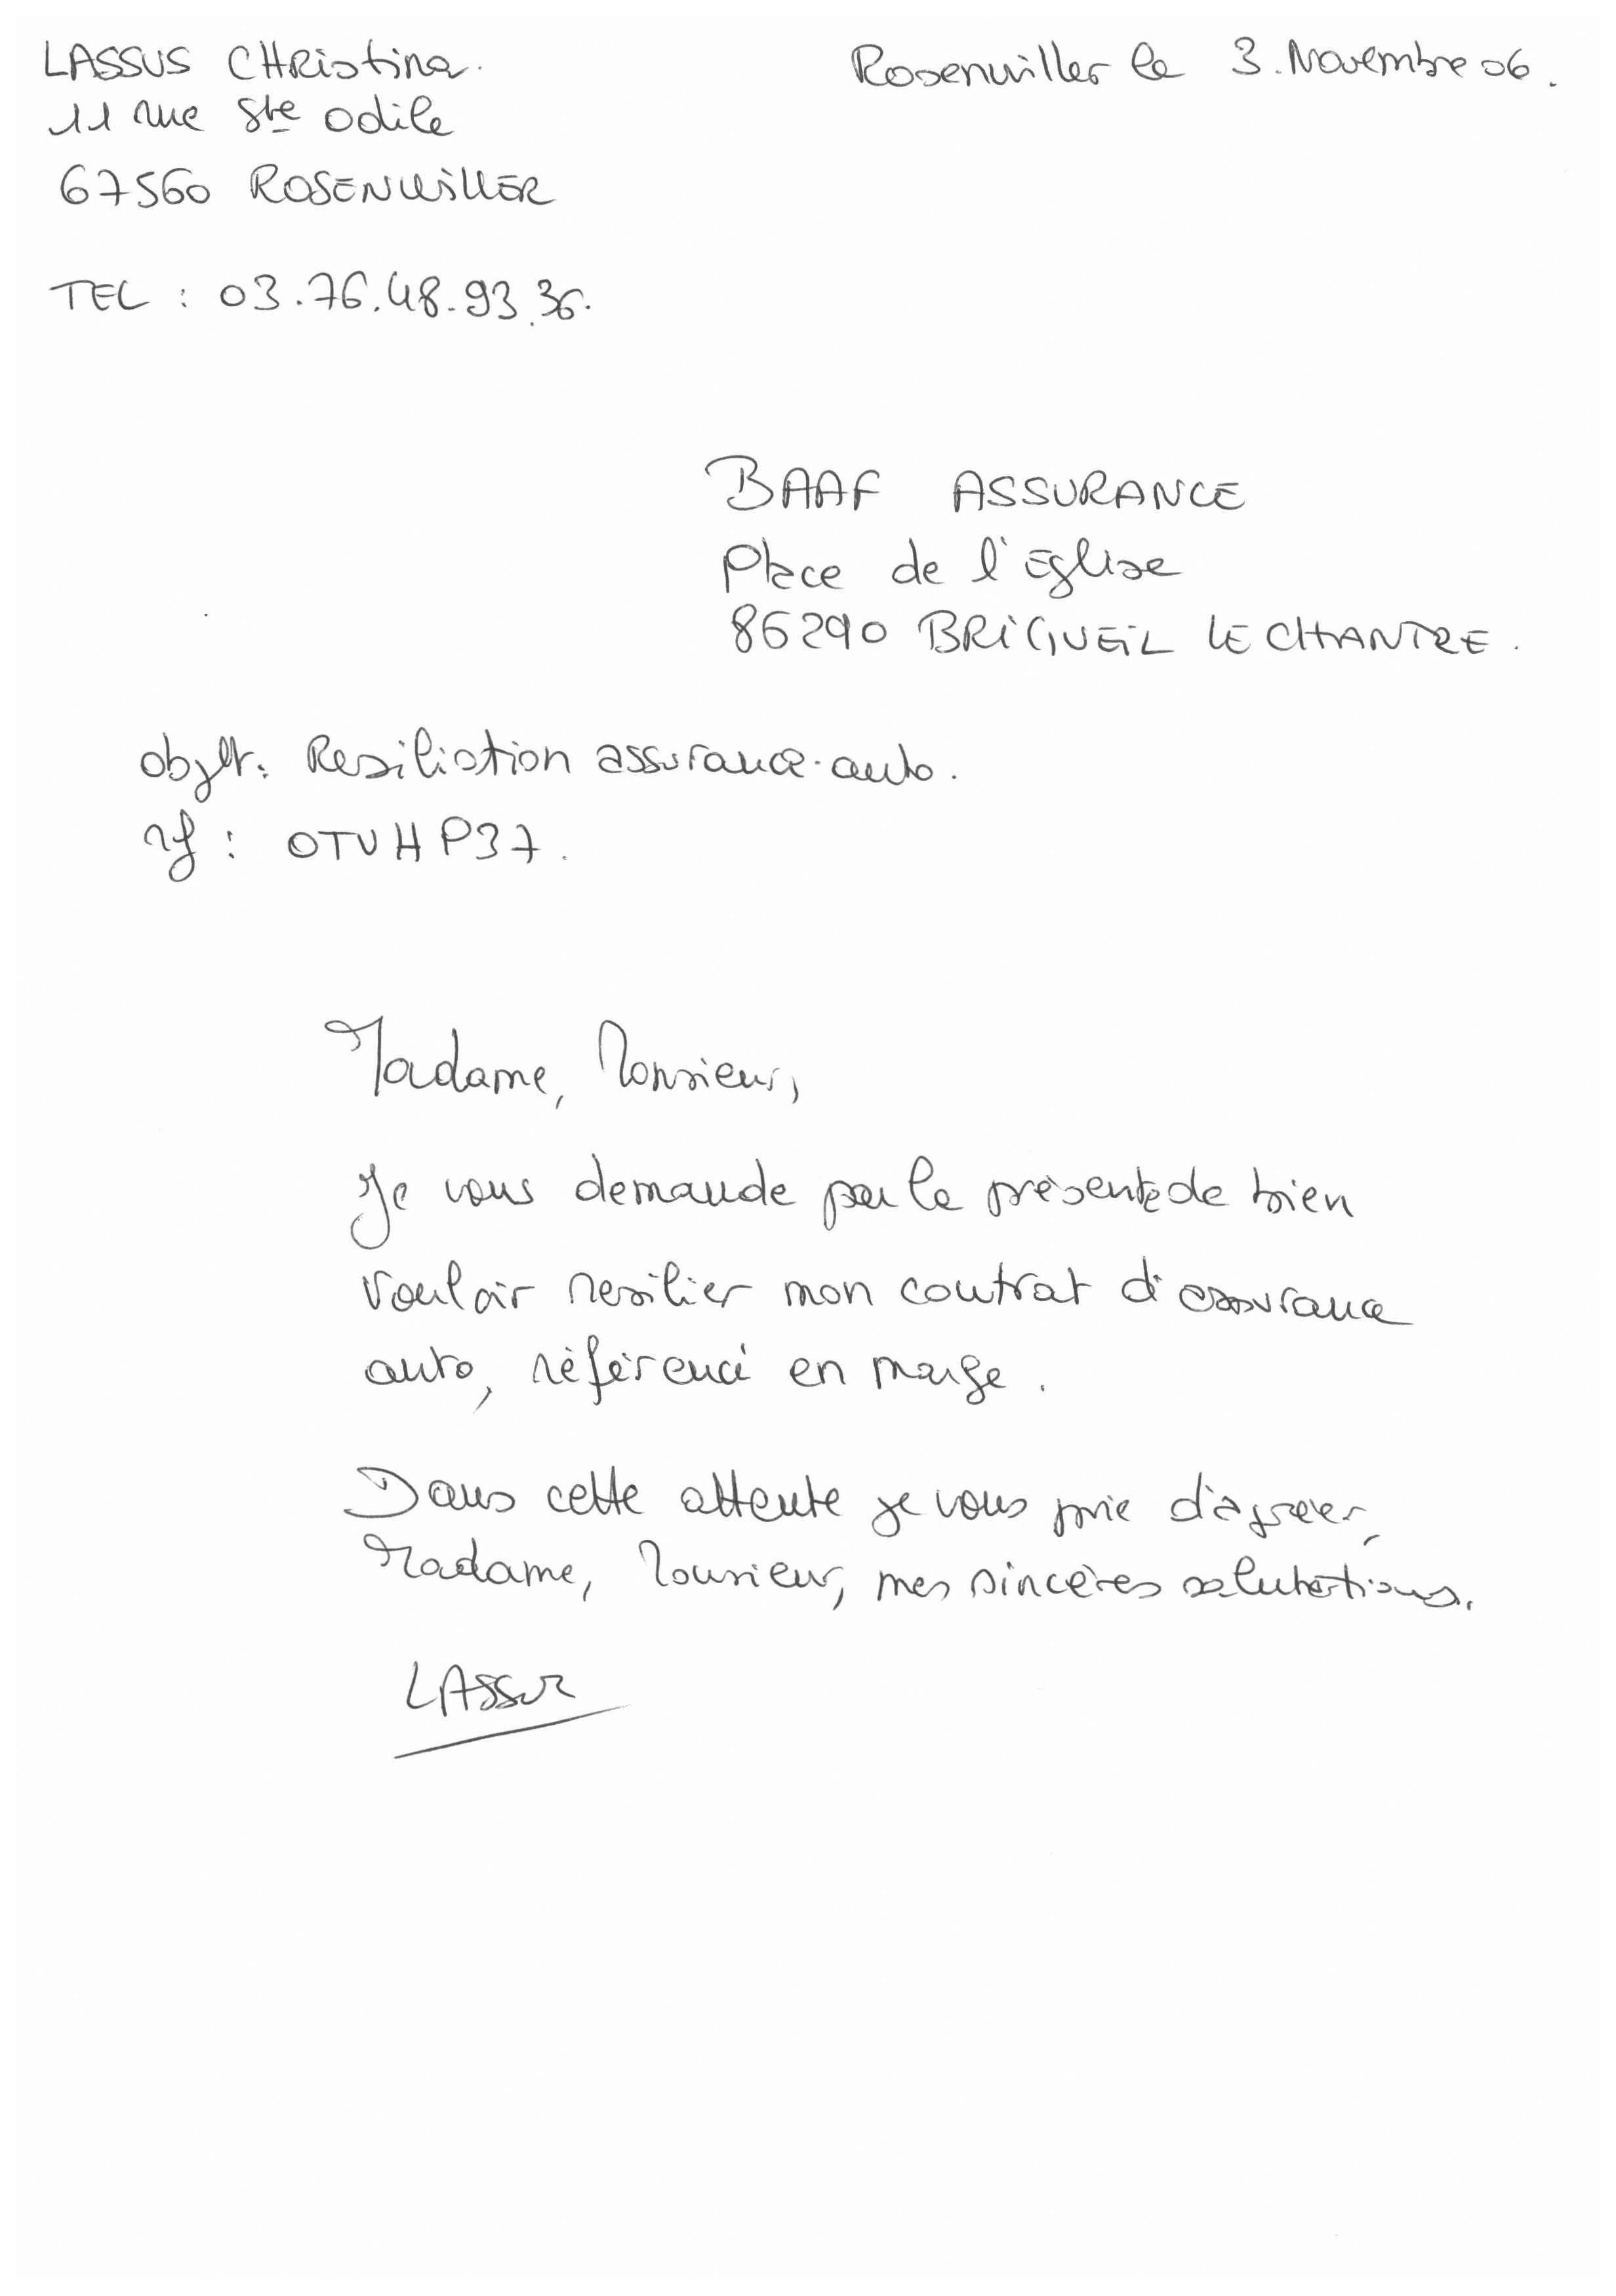 LASSUS CHRistina.
Rosenwiller le 3. Novembre 06.
11 rue Ste Odile
67560 ROSENWILLER
TEL : 03.76.48.93.36.
BAAF ASSURANCE
Place de l'Eglise
86290 BRIGUEIL LE CHANTRE.
objet: Resiliation assurance-auto.
réf : OTVHP37.
Madame, Monsieur,
Je vous demande par la présente de bien
vouloir resilier mon contrat d'assurance
auto, référencé en marge.
Dans cette attente je vous prie d'agréer,
Madame, Monsieur, mes sincères salutations.
LASSUS